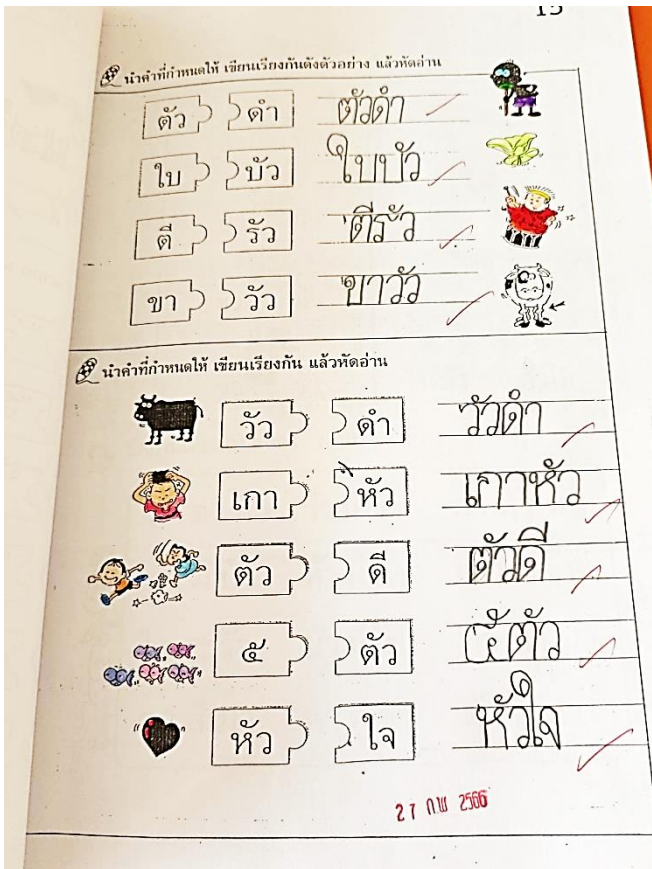 15
นำคำที่กำหนดให้ เขียนเรียงกันดังตัวอย่าง แล้วหัดอ่าน
ตัว ดำ ตัวดำ
ใบ บัว ใบบัว
ตี รัว ตีรัว
ขา วัว ขาวัว
นำคำที่กำหนดให้ เขียนเรียงกัน แล้วหัดอ่าน
วัว ดำ วัวดำ
เกา หัว เกาหัว
ตัว ดี ตัวดี
๕ ตัว ๕ตัว
หัว ใจ หัวใจ
27 กพ 2566